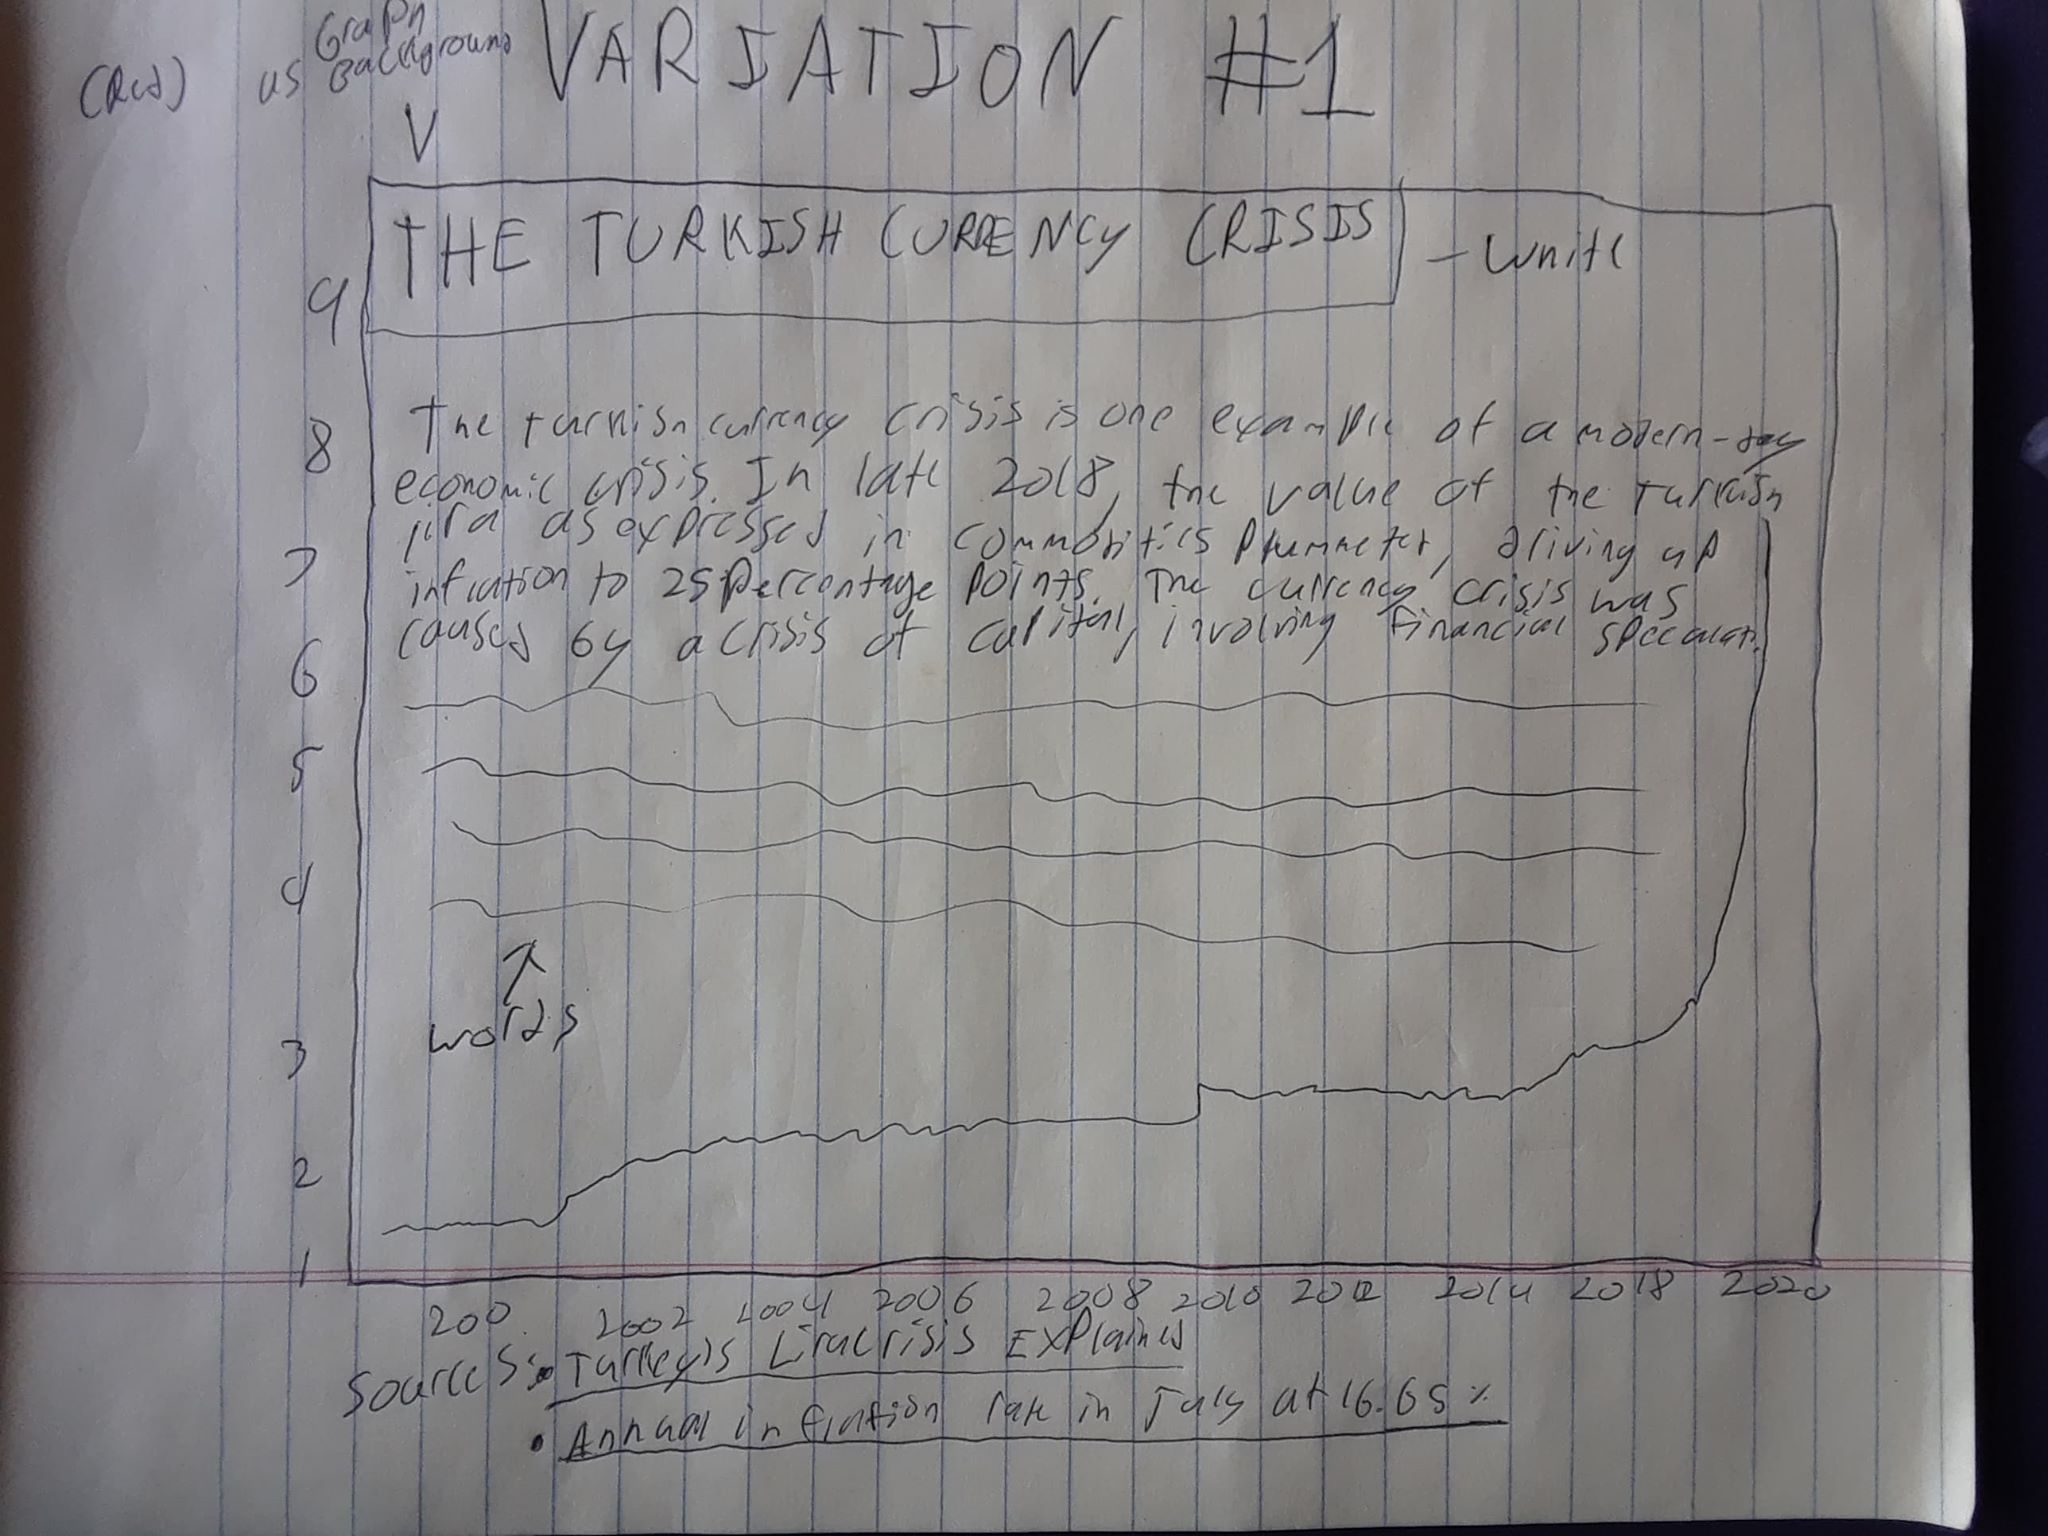 (Red) as Graph Background
V
VARIATION #1
THE TURKISH CURRENCY CRISIS - White
The Turkish currency crisis is one example of a modern-day
economic crisis. In late 2018, the value of the Turkish
lira as expressed in commodities plummeter, driving up
inflation to 25 percentage points. The currency crisis was
caused by a crisis of capital, involving financial
words
9
8
7
6
5
4
3
2
1
200 2002 2004 2006 2008 2010 2012 2014 2018 2020
Sources: • Turkey's Lira crisis Explained
• Annual inflation rate in July at 16.65%